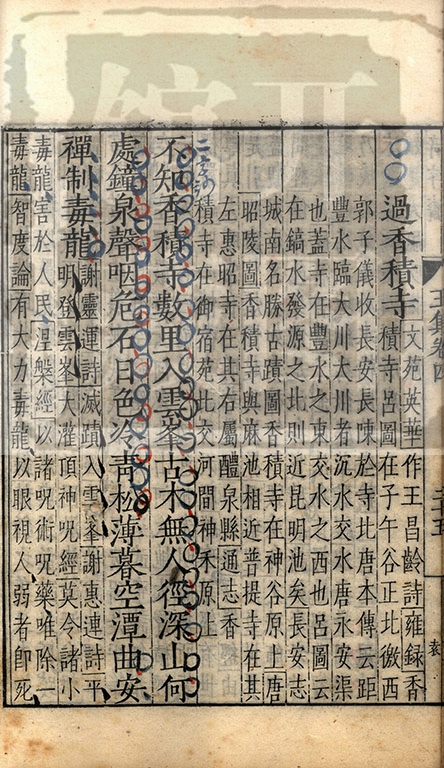 過香積寺文苑英華作王昌齡詩雍錄香
積寺呂圖在子午谷正北徼西
郭子儀收長安長陳於寺北唐本傳云距
豐水臨大川大川者沉水交水唐永安渠
也蓋寺在豐水之東交水之西也呂圖云
在鎬水發源之北則近昆明池矣長安志
城南名勝古蹟圖香積寺在神谷原上唐
昭陵圖香積寺與麻池相近普提寺在其
左惠昭寺在其右屬醴泉縣通志香
積寺在御宿苑北交河間神禾原上
不知香積寺數里入雲峯古木無人徑深山何
處鐘泉聲咽危石日色冷青松薄暮空潭曲安
禪制毒龍謝靈運詩滅蹟入雲峯謝惠連詩平
明登雲峯大灌頂神呪經莫令諸小
毒龍害於人民湼槃經以諸呪術呪藥唯除一
毒龍智度論有大力毒龍以眼視人弱者卽死